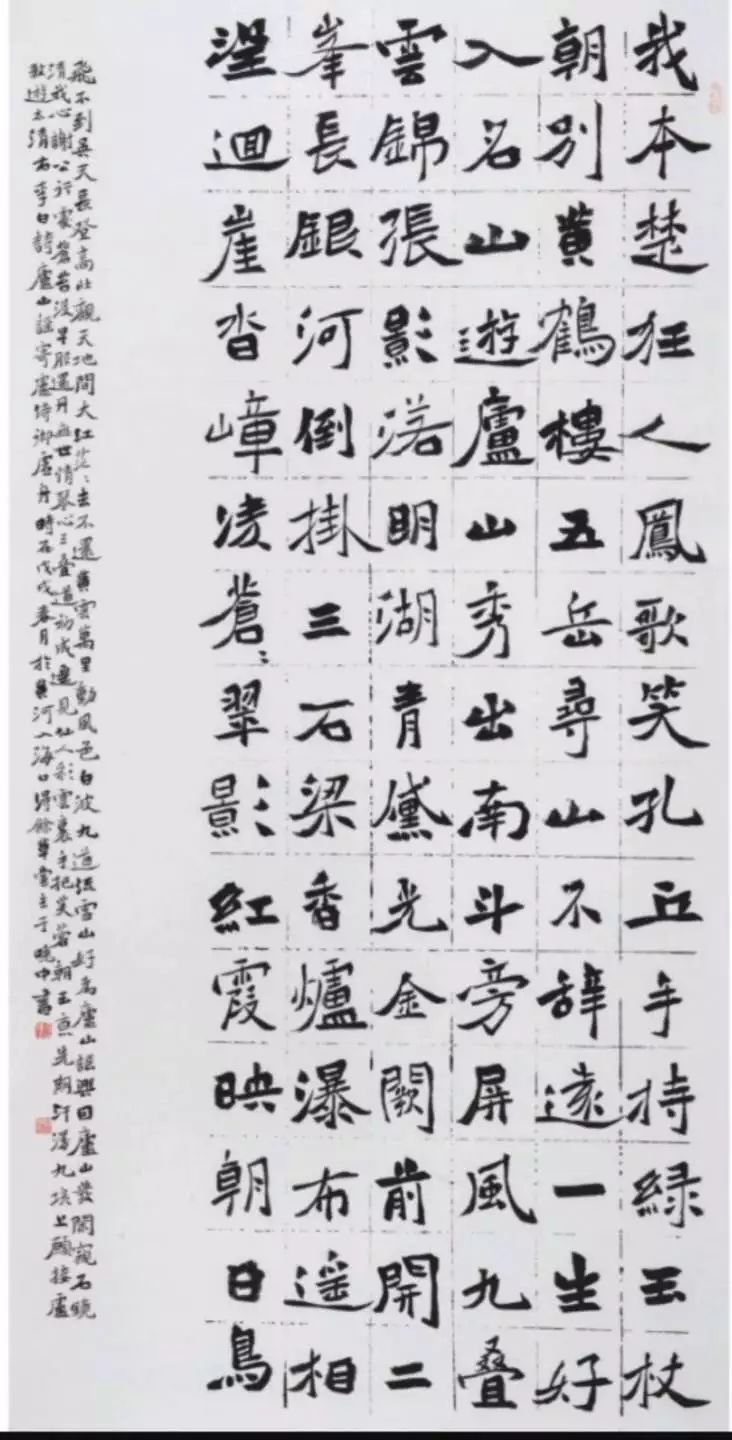 我本楚狂人鳳歌笑孔丘手持綠玉杖
朝別黃鶴樓五岳尋山不辭遠一生好
入名山遊廬山秀出南斗旁屏風九叠
雲錦張影落明湖青黛光金闕前開二
峯長銀河倒掛三石梁香爐瀑布遥相
望迴崖沓嶂凌蒼〻翠影紅霞映朝日鳥
飛不到吳天長登高壯觀天地間大江茫〻去不還黃雲萬里動風色白波九道流雪山好為廬山謠興因廬山發閑窺石鏡
清我心謝公行處蒼苔沒早服還丹無世情琴心三叠道初成遥見仙人彩雲裏手把芙蓉朝玉京先期汗漫九垓上願接盧
敖遊太清右李白詩廬山謠寄盧侍御虛舟時在戊戌春月於黃河入海口得餘草堂主于曉中書